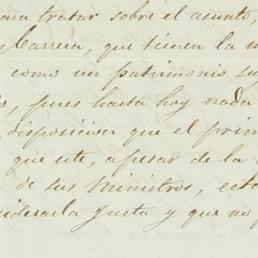 ara tratar sobre el asunto,
Carrera, que tienen la m
como un patrimonio su
s, pues hasta hoy nada
disposicion que el prim
que este, apesar de la
de sus Ministros, este
siderarla justa y que no p